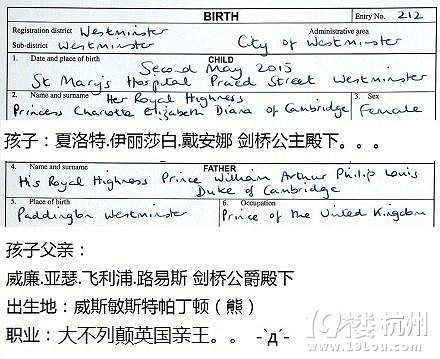 BIRTH
Entry No. 212
Registration district Westminster
Administrative area
Sub-district Westminster
City of Westminster
1. Date and place of birth
CHILD
Second May 2015
St Mary's Hospital Praed Street Westminster
2. Name and surname
3. Sex
Her Royal Highness
Princess Charlotte Elizabeth Diana of Cambridge
Female
孩子：夏洛特.伊丽莎白.戴安娜 剑桥公主殿下。。。
4. Name and surname
FATHER
His Royal Highness Prince William Arthur Philip Louis
Duke of Cambridge
5. Place of birth
6. Occupation
Paddington Westminster
Prince of the United Kingdom
孩子父亲：
威廉.亚瑟.飞利浦.路易斯 剑桥公爵殿下
出生地：威斯敏斯特帕丁顿（熊）
职业：大不列颠英国亲王。。 -`д´-
19楼 杭州
www.19lou.com